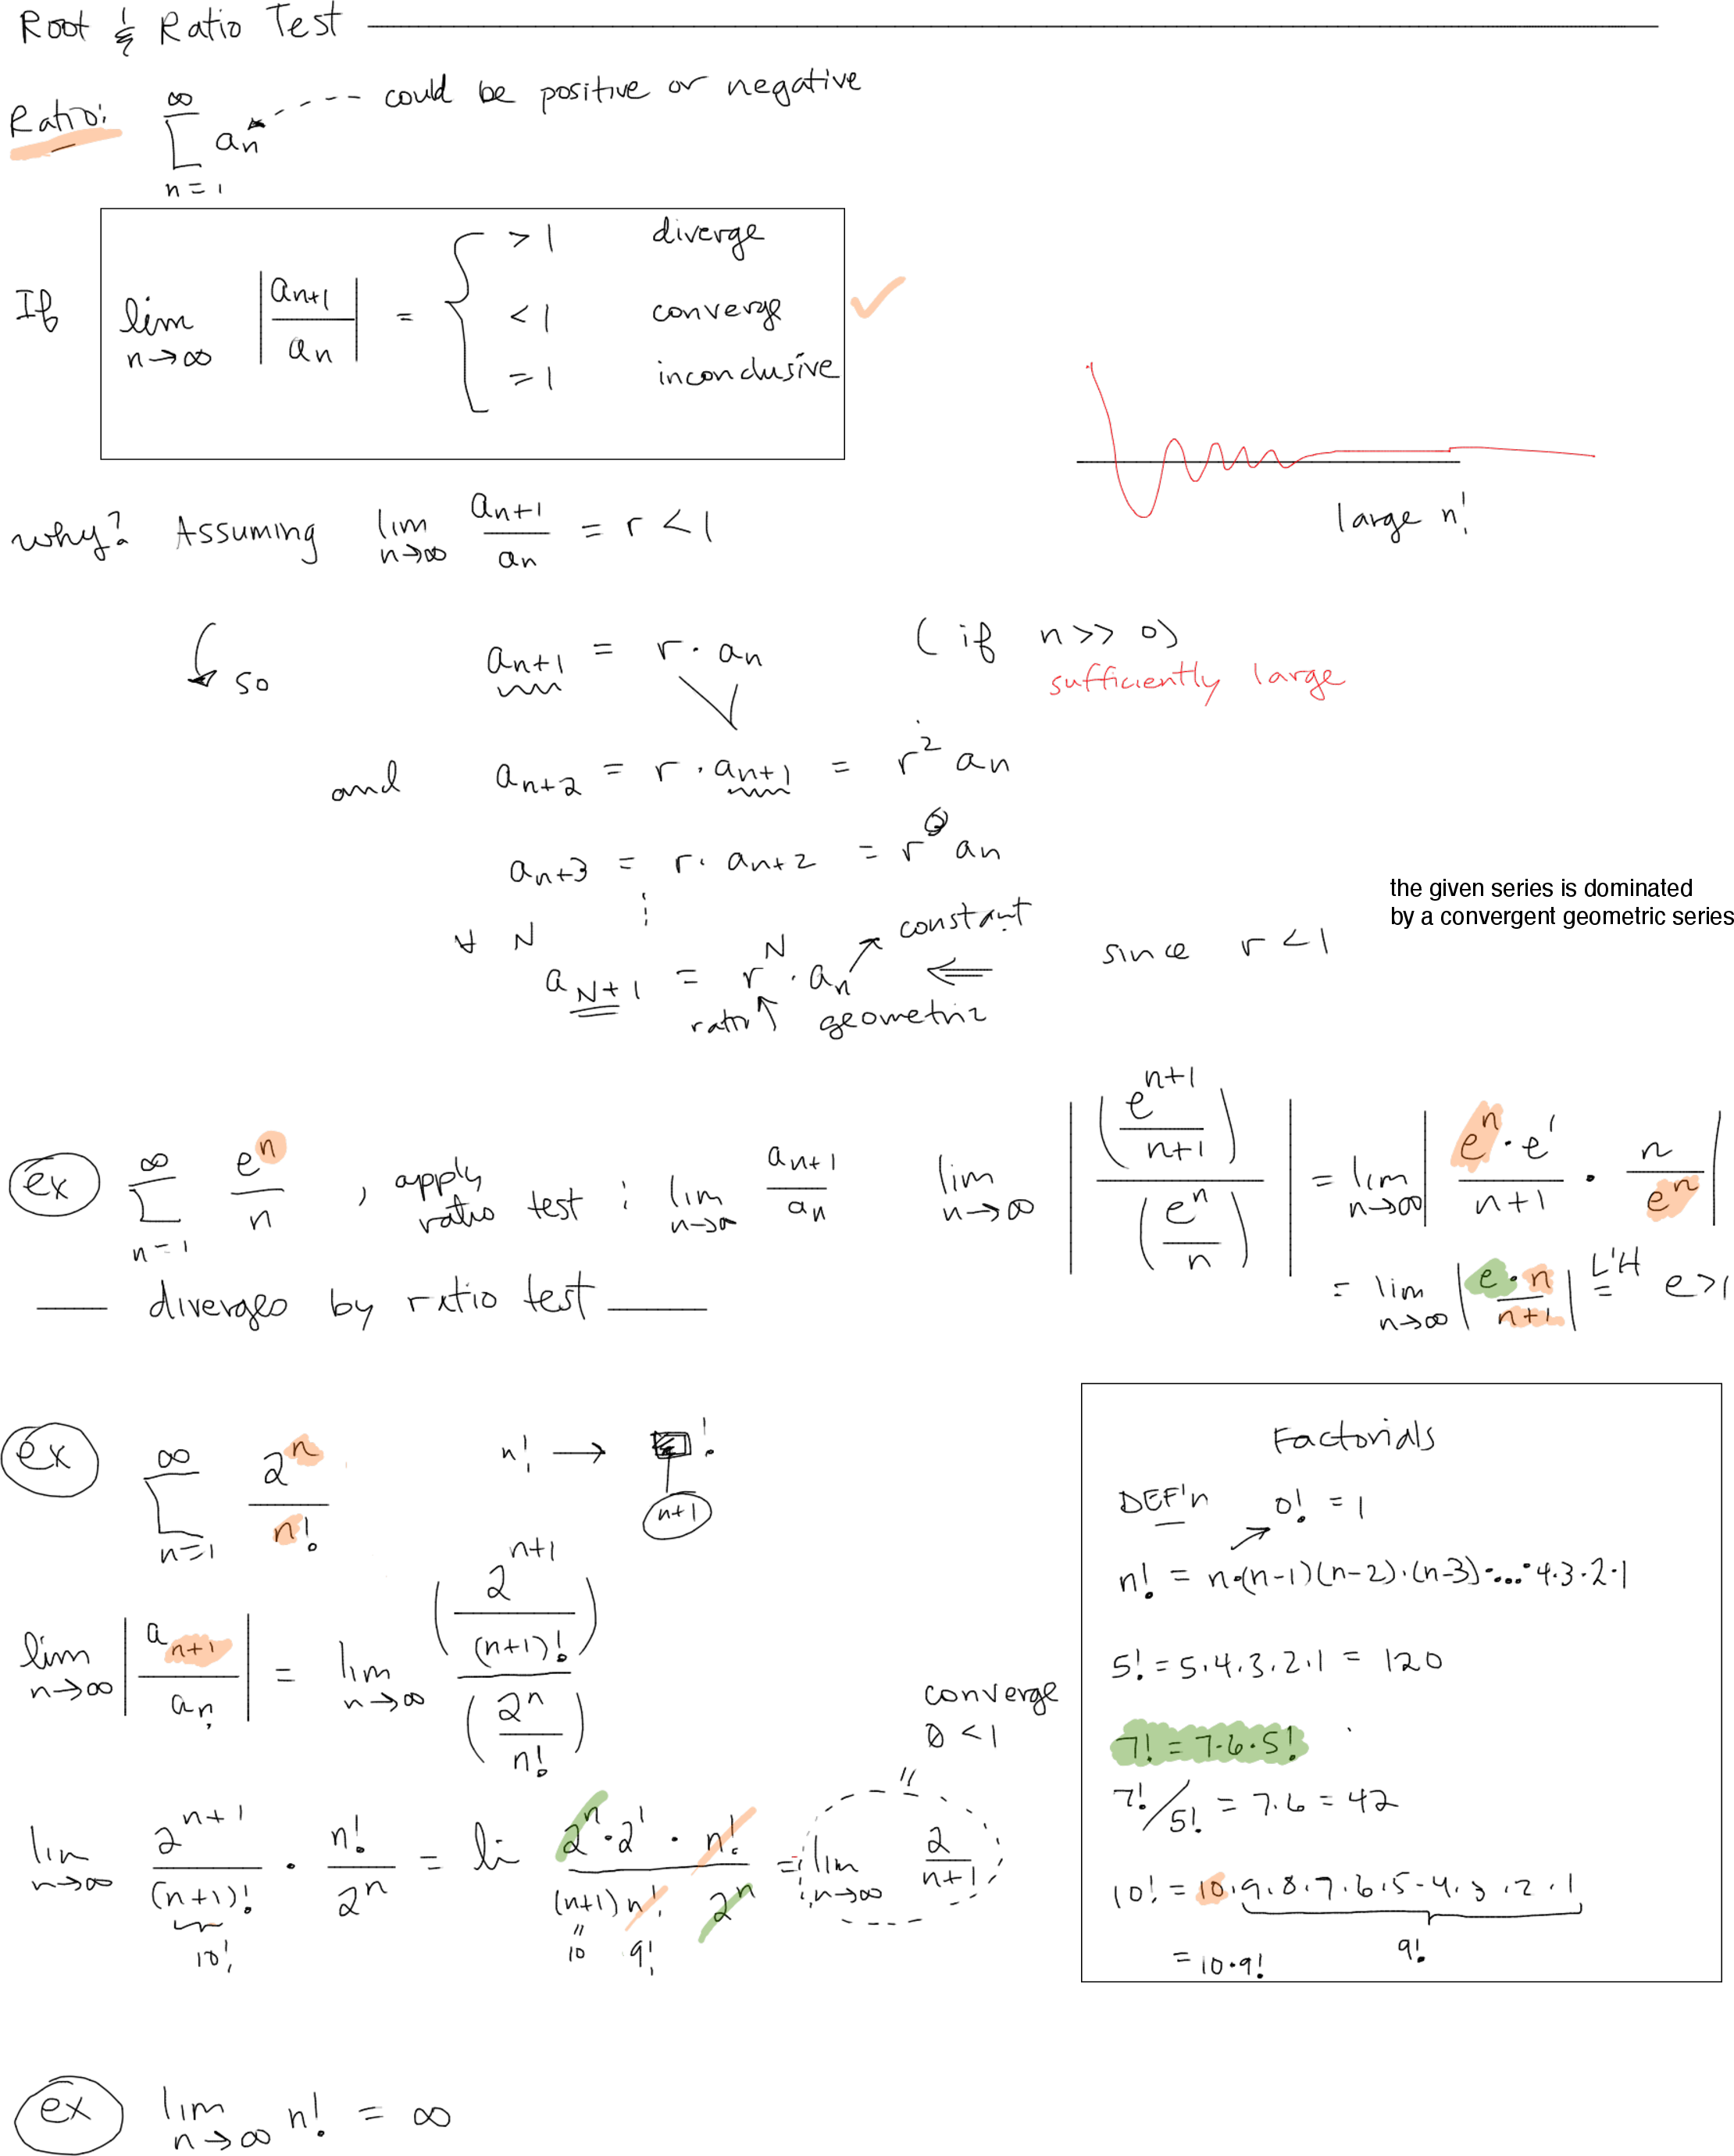 Root & Ratio Test
Ratio: ∞ Σ n=1 an could be positive or negative
If lim n→∞ |an+1 / an| = { > 1 diverge
< 1 converge
= 1 inconclusive
large n!
why? Assuming lim n→∞ an+1 / an = r < 1
so an+1 = r · an (if n >> 0)
sufficiently large
and an+2 = r · an+1 = r² an
an+3 = r · an+2 = r³ an
⋮
∀ N
aN+1 = r^N · an constant ⇐ since r < 1
ratio ↑ geometric
the given series is dominated
by a convergent geometric series
ex ∞ Σ n=1 e^n / n , apply ratio test : lim n→∞ an+1 / an lim n→∞ |(e^(n+1) / (n+1)) / (e^n / n)| = lim n→∞ |e^n · e' / (n+1) · n / e^n|
= lim n→∞ |e · n / (n+1)| L'H = e > 1
diverges by ratio test
ex ∞ Σ n=1 2^n / n! n! → □!
n+1
lim n→∞ |an+1 / an| = lim n→∞ (2^(n+1) / (n+1)!) / (2^n / n!)
converge
0 < 1
"
lim n→∞ 2^(n+1) / (n+1)! · n! / 2^n = li 2^n · 2' · n! / (n+1) n! 2^n = lim n→∞ 2 / (n+1)
10! " 10 9!
Factorials
DEF'n 0! = 1
n! = n·(n-1)(n-2)·(n-3)·...·4·3·2·1
5! = 5·4·3·2·1 = 120
7! = 7·6·5!
7!/5! = 7·6 = 42
10! = 10·9·8·7·6·5·4·3·2·1
9!
= 10·9!
ex lim n→∞ n! = ∞